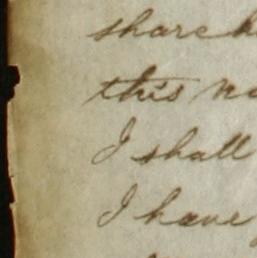 share
this
I shall
I have